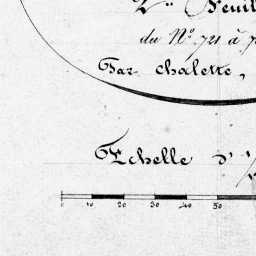 2.e Feuil
du N.º 721 à 7
Par chalette,
Echelle d' 1/
0 10 20 30 40 50